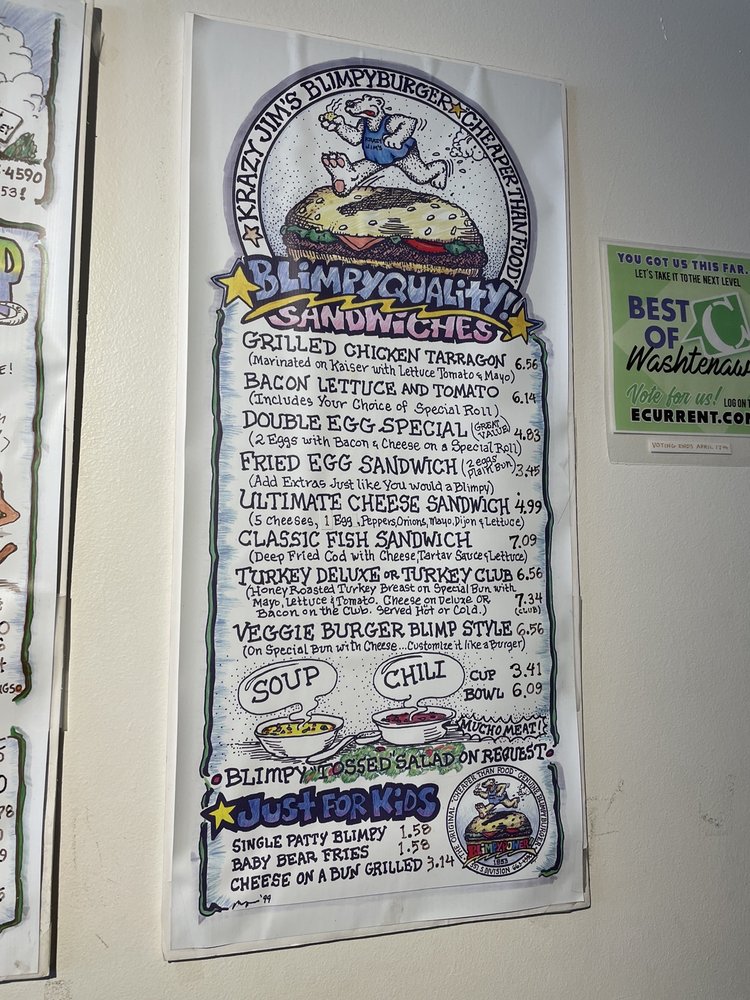 EY
-4590
53!
P
E!
KRAZY JIM'S BLIMPYBURGER ★ CHEAPER THAN FOOD
KRAZY
JIM'S
BLIMPYQUALITY!!
SANDWICHES
GRILLED CHICKEN TARRAGON 6.56
(Marinated on Kaiser with Lettuce Tomato & Mayo)
BACON LETTUCE AND TOMATO 6.14
(Includes Your Choice of Special Roll)
DOUBLE EGG SPECIAL (GREAT VALUE) 4.83
(2 Eggs with Bacon & Cheese on a Special Roll)
FRIED EGG SANDWICH (2 eggs plain Bun) 3.45
(Add Extras Just like You would a Blimpy)
ULTIMATE CHEESE SANDWICH 4.99
(5 Cheeses, 1 Egg, Peppers, Onions, Mayo, Dijon & Lettuce)
CLASSIC FISH SANDWICH 7.09
(Deep Fried Cod with Cheese, Tartar Sauce & Lettuce)
TURKEY DELUXE OR TURKEY CLUB 6.56
(Honey Roasted Turkey Breast on Special Bun with
Mayo, Lettuce & Tomato. Cheese on Deluxe OR 7.34
Bacon on the Club. Served Hot or Cold.) (CLUB)
VEGGIE BURGER BLIMP STYLE 6.56
(On Special Bun with Cheese...Customize it like a Burger)
SOUP CHILI CUP 3.41
BOWL 6.09
MUCHO MEAT!
BLIMPY "TOSSED" SALAD ON REQUEST
JUST FOR KIDS
SINGLE PATTY BLIMPY 1.58
BABY BEAR FRIES 1.58
CHEESE ON A BUN GRILLED 3.14
'99
CHEAPER THAN FOOD
BLIMPYBURGER
1953
YOU GOT US THIS FAR.
LET'S TAKE IT TO THE NEXT LEVEL
BEST
OF
C
Washtenaw
Vote for us! LOG ON T
ECURRENT.CO
VOTING ENDS APRIL 17TH